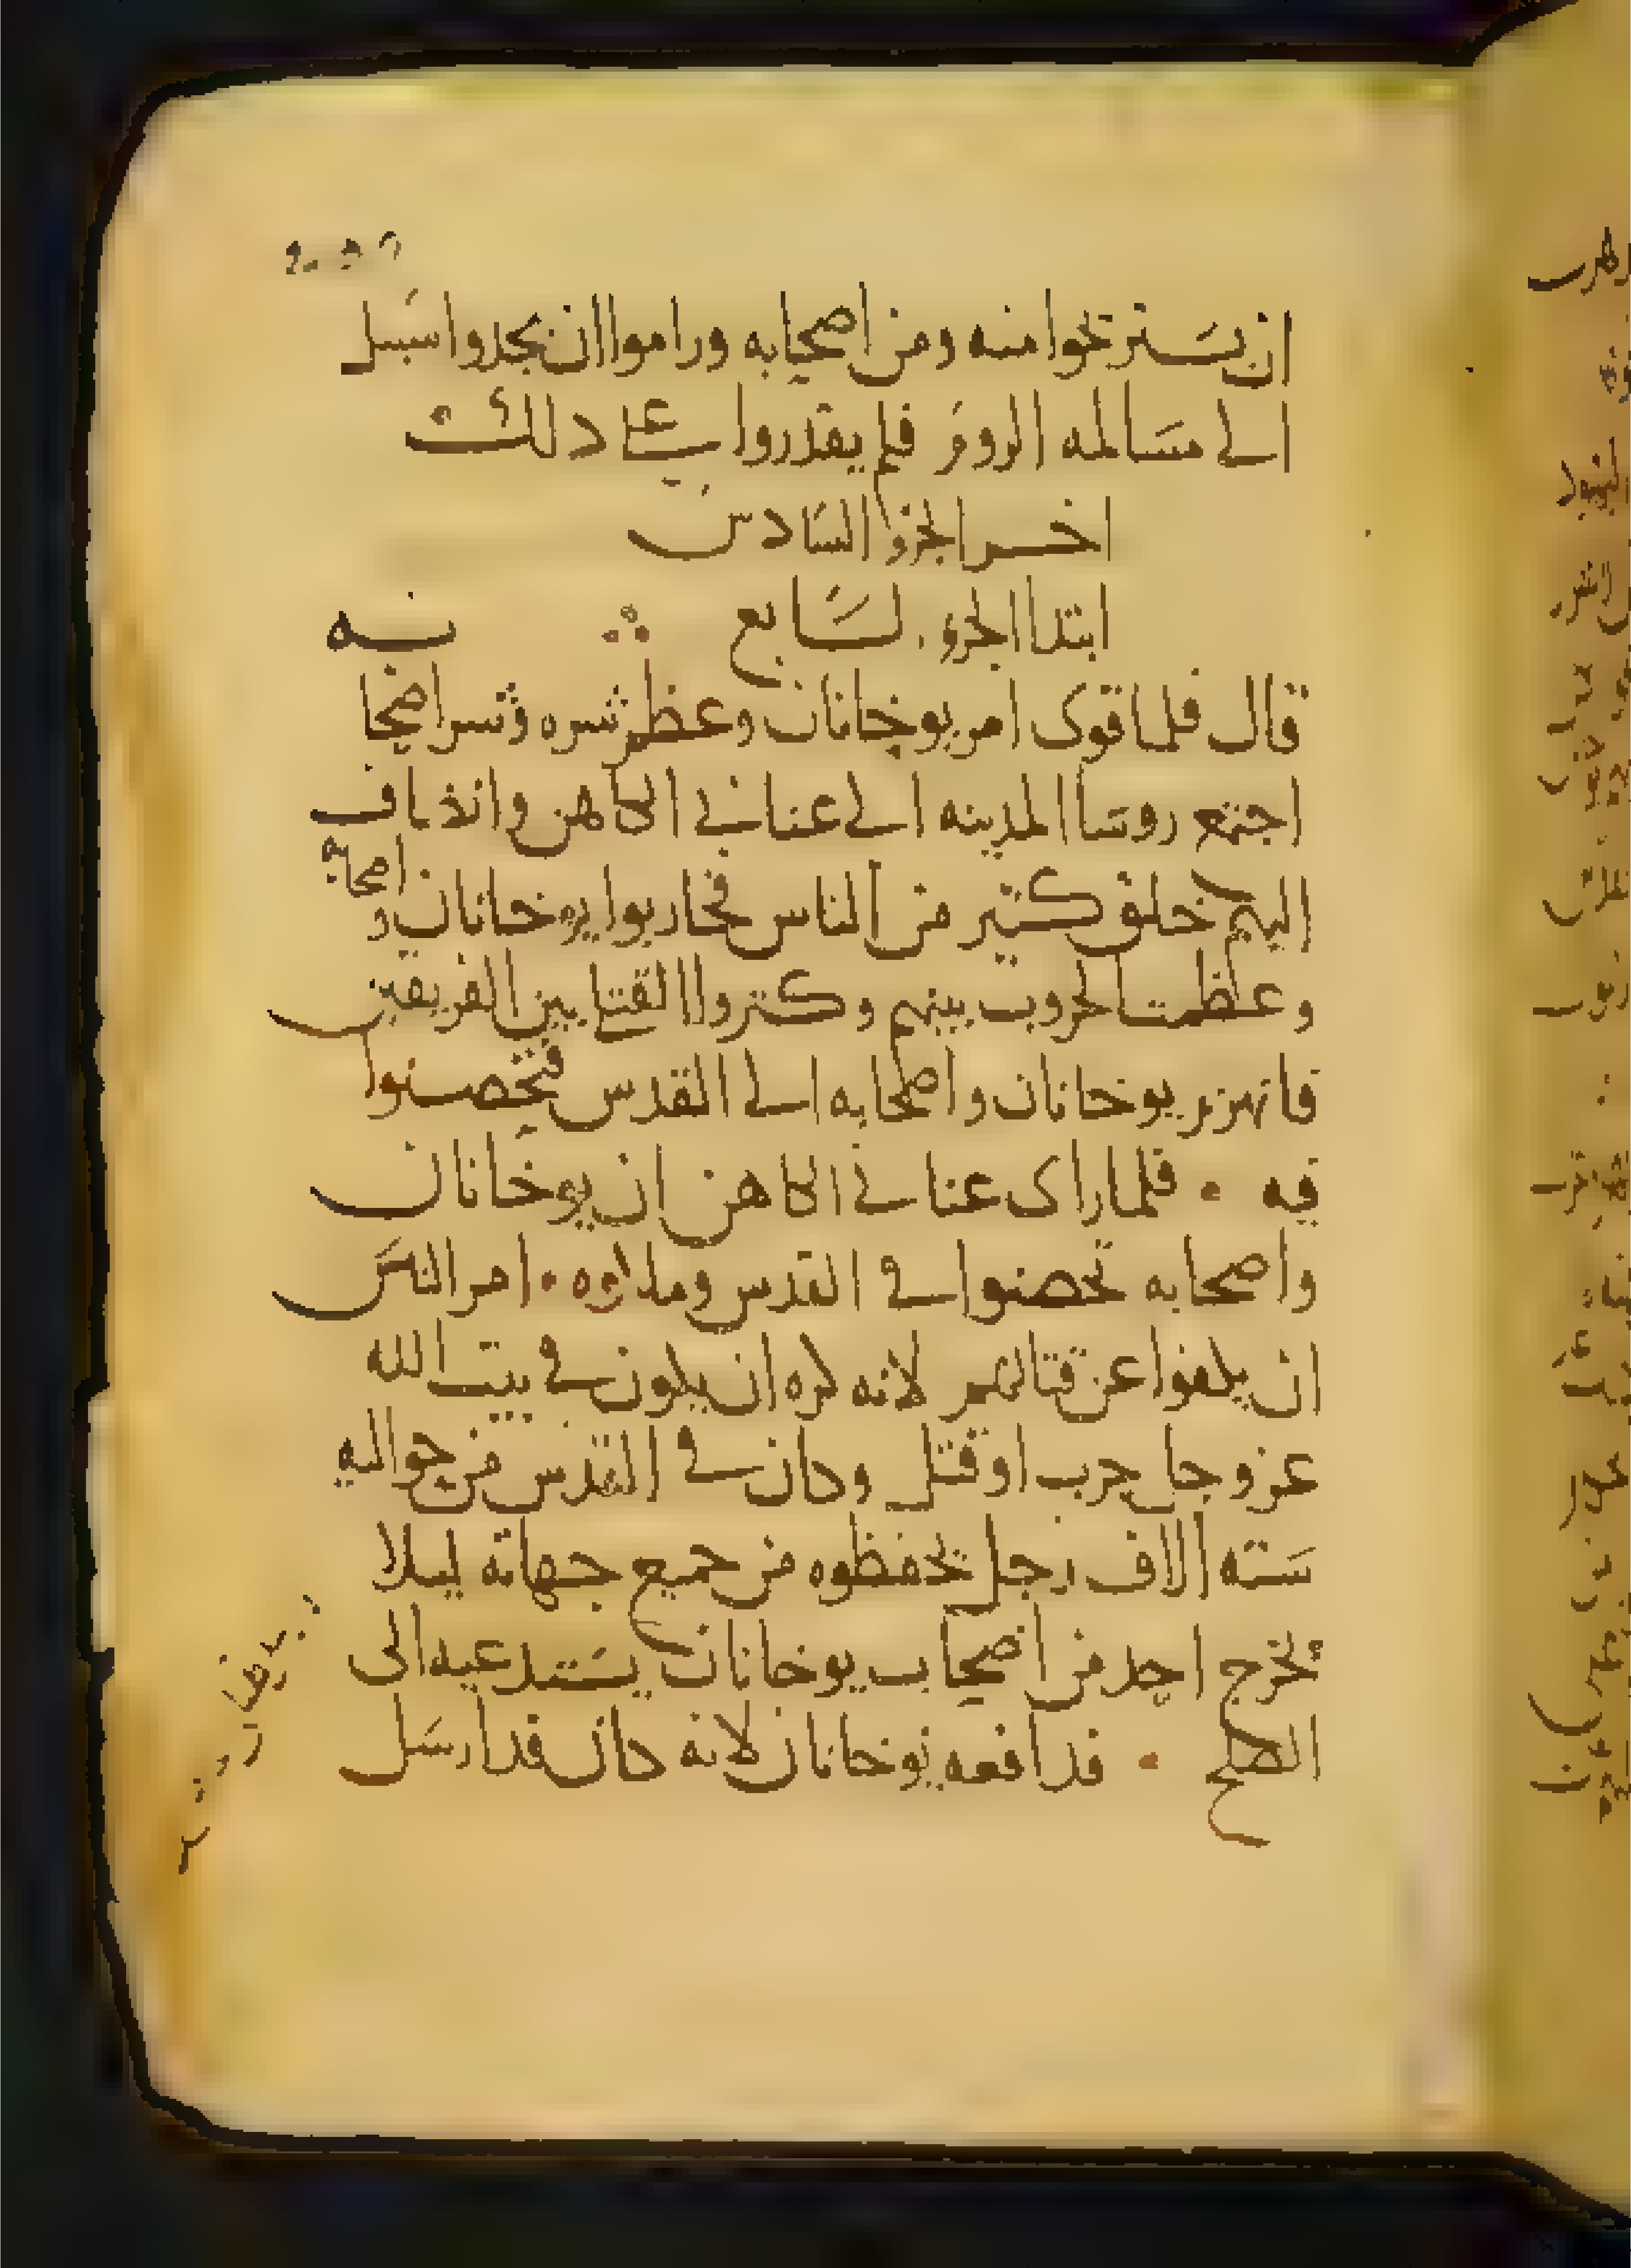 ان يستريحوا منه ومن اصحابه وراموا ان يجدوا سبيل
الى مسالمه الروم فلم يقدروا على دلك
اخر الجزؤ السادس
ابتدا الجزء السابع
قال فلما قوى امر يوحانان وعظم شره وشر اصحابه
اجتمع روسا المدينه الى عناني الكاهن وانضاف
اليهم خلق كثير من الناس فحاربوا يوحانان و اصحابه
وعظمت الحروب بينهم وكتروا القتلى بين الفريقين
فانهزم يوحانان واصحابه الى القدس فتحصنوا
فيه ٠ فلما راى عناني الكاهن ان يوحانان
واصحابه تحصنوا في القدس وملكوه ٠ امر الناس
ان يكفوا عن قتالهم لانه كره ان يكون في بيت الله
عز وجل حرب او قتل وكان في القدس من حواليه
سته الاف رجل يحفظوه من جميع جهاته ليلا
يخرج احد من اصحاب يوحانان يستدعيه الى
الصلح ٠ فدافعه يوحانان لانه كان قد ارسل